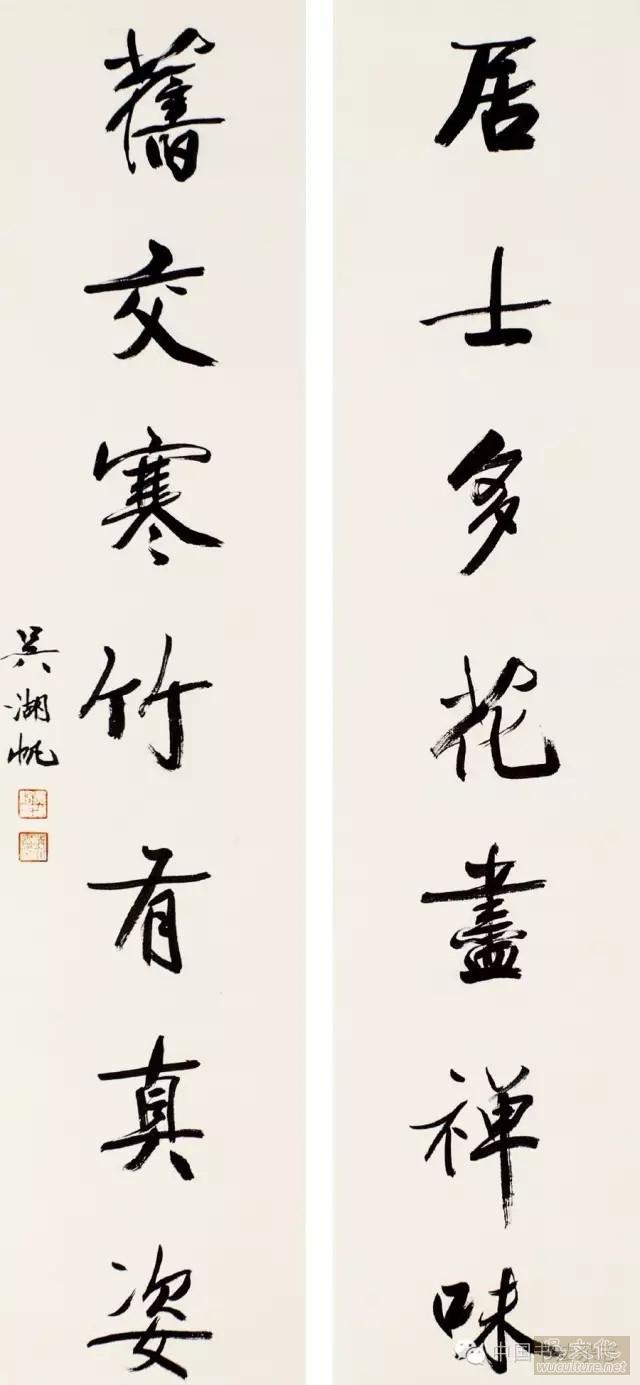 居士多花盡禅味
舊交寒竹有真姿
吳湖帆
中国书文化
www.wuculture.net